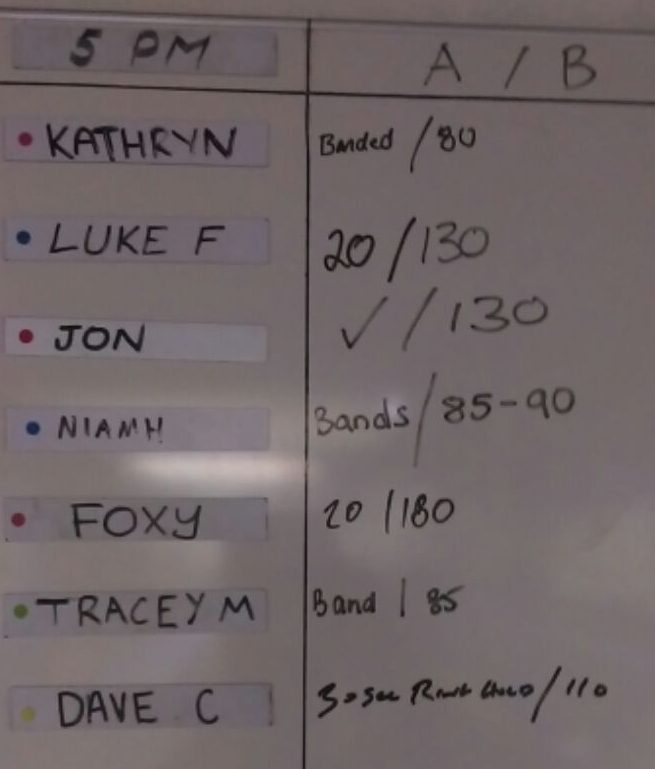 5 PM A / B
KATHRYN Banded / 80
LUKE F 20 / 130
JON ✓ / 130
NIAMH Bands / 85-90
FOXY 20 / 180
TRACEY M Band / 85
DAVE C 30 sec / 110